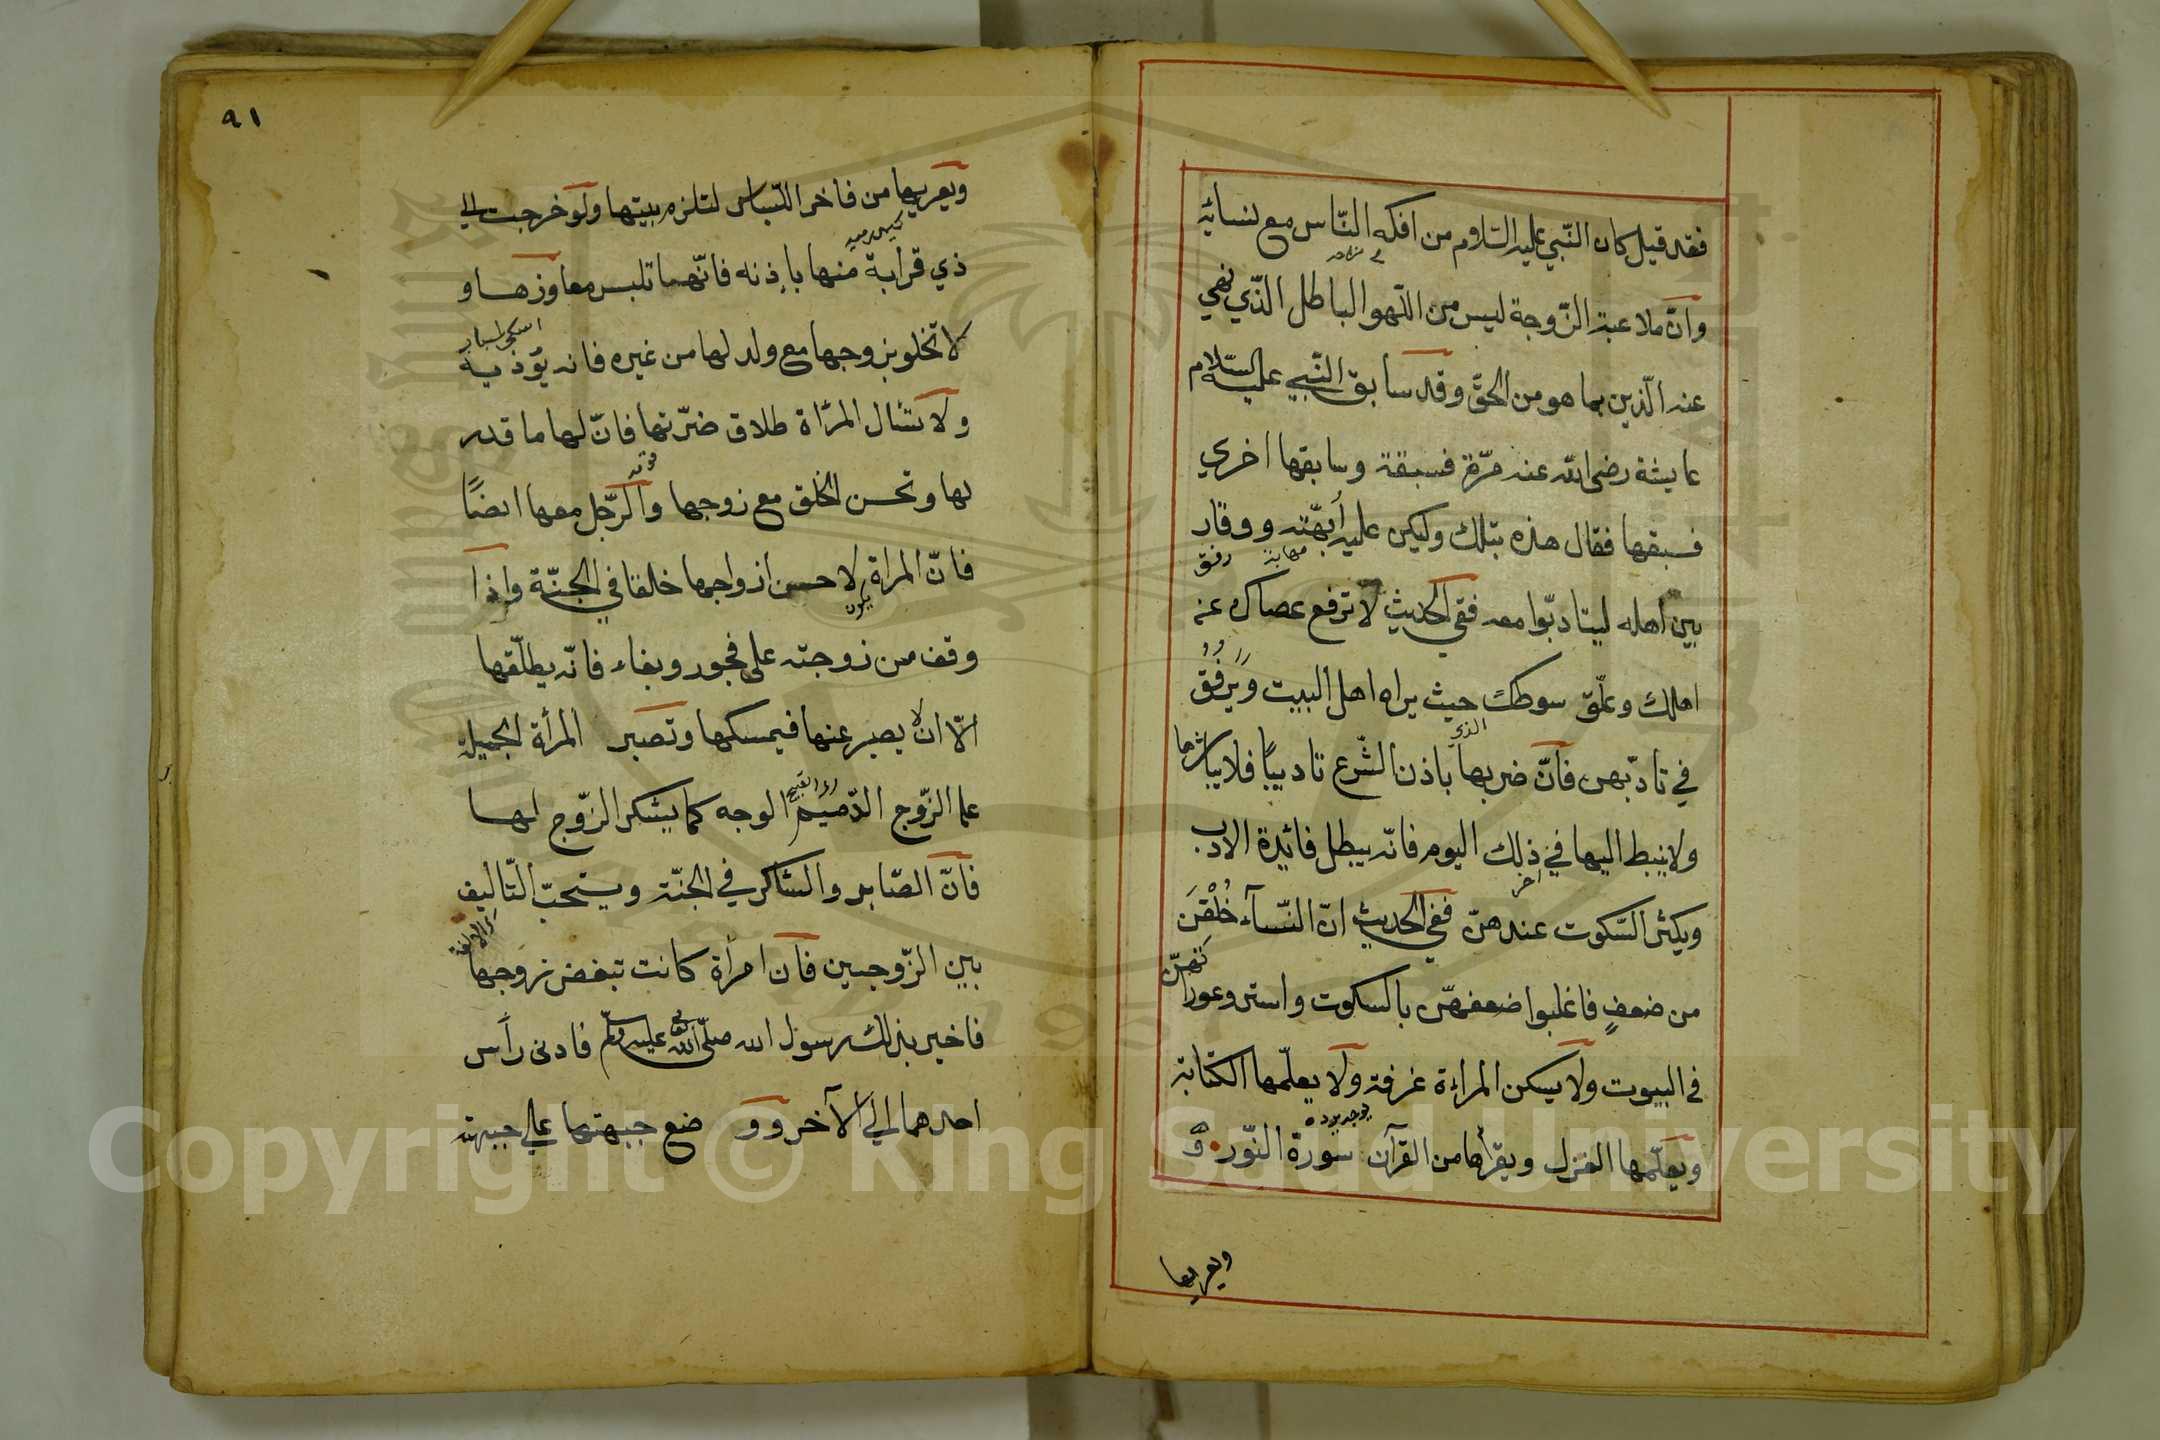 فقد قيل كان النّبي عليه السّلام من افكه النّاس مع نسائه
مزاحه
وانّ ملاعبة الزّوجة ليس من اللّهو الباطل الذّي نهي
عنه الّذين بما هو من الحقّ وقد سابق النّبي عليه السّلام
عايشة رضى الله عنه مرّة فسبقة وسابقها اخري
فسبقها فقال هذه بتلك وليكن عليه أبهّته ووقار
مهابة رفق
بين اهله ليتادبّوا معه ففي الحديث لا ترفع عصاك عن
اهلك وعلّق سوطك حيث يراه اهل البيت وَيَرفُقُ
في تادبّهن فانّ ضربها باذن الشّرع تاديبًا فلا يباشرها
الذى
ولا ينبط اليها في ذلك اليوم فانّه يبطل فائدة الادب
اخر
ويكثر السّكوت عندهنّ ففي الحديث انّ النّسآء خُلْقنَ
من ضعفٍ فاغلبوا ضعفهنّ بالسكوت واستروعوراتهنّ
في البيوت ولا يسكن المراءة غرفة ولا يعلّمها الكتابة
ويعلّمها الغزل ويقرأها من القرآن سورة النّور و
ويعريها
٩١
ويعريها من فاخر اللّباس لتلزم بيتها ولو خرجت الي
ذي قرابة منها باِذنه فانّهما تلبس معاوزها و
لا تخلو بزوجها مع ولد لها من غيره فانه يؤذيه
ولا تسئال المرْاة طلاق ضرّتها فانّ لها ما قدر
لها وتحسن الخلق مع زوجها والرّجل معها ايضًا
فانّ المراة لاحسن ازواجها خلقا في الجنّة واذا
يكون
وقف من زوجته على فجور وبغاء فانّه يطلّقها
الّا ان لا يصبر عنها فيمسكها وتصبر المرأة الجميلة
علا الزّوج الدّميم الوجه كما يشكر الزّوج لها
القبيح
فانّ الصّابر والشاكر في الجنّة ويستحبّ التّاليف
الالفة
بين الزّوجين فان امرأة كانت تبغض زوجها
فاخبر بذلك رسول الله صلّى الله عليه وسلّم فادنى رأس
احدهما الي الآخر وو ضع جبهتها علي جبهته
Copyright © King Saud University